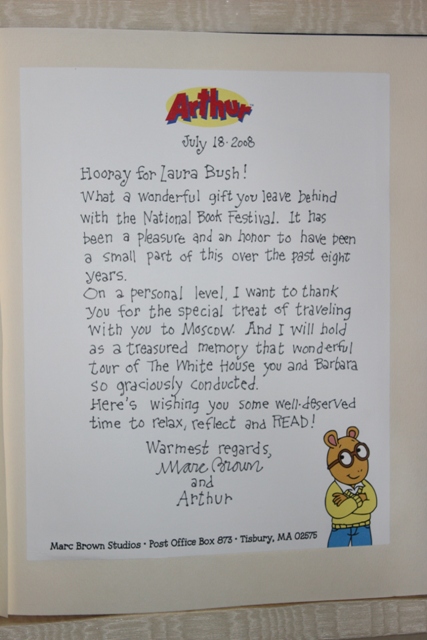 Arthur
July 18·2008
Hooray for Laura Bush!
What a wonderful gift you leave behind
with the National Book Festival. It has
been a pleasure and an honor to have been
a small part of this over the past eight
years.
On a personal level, I want to thank
you for the special treat of traveling
with you to Moscow. And I will hold
as a treasured memory that wonderful
tour of The White House you and Barbara
so graciously conducted.
Here's wishing you some well-deserved
time to relax, reflect and READ!
Warmest regards,
Marc Brown
and
Arthur
Marc Brown Studios · Post Office Box 873 · Tisbury, MA 02575